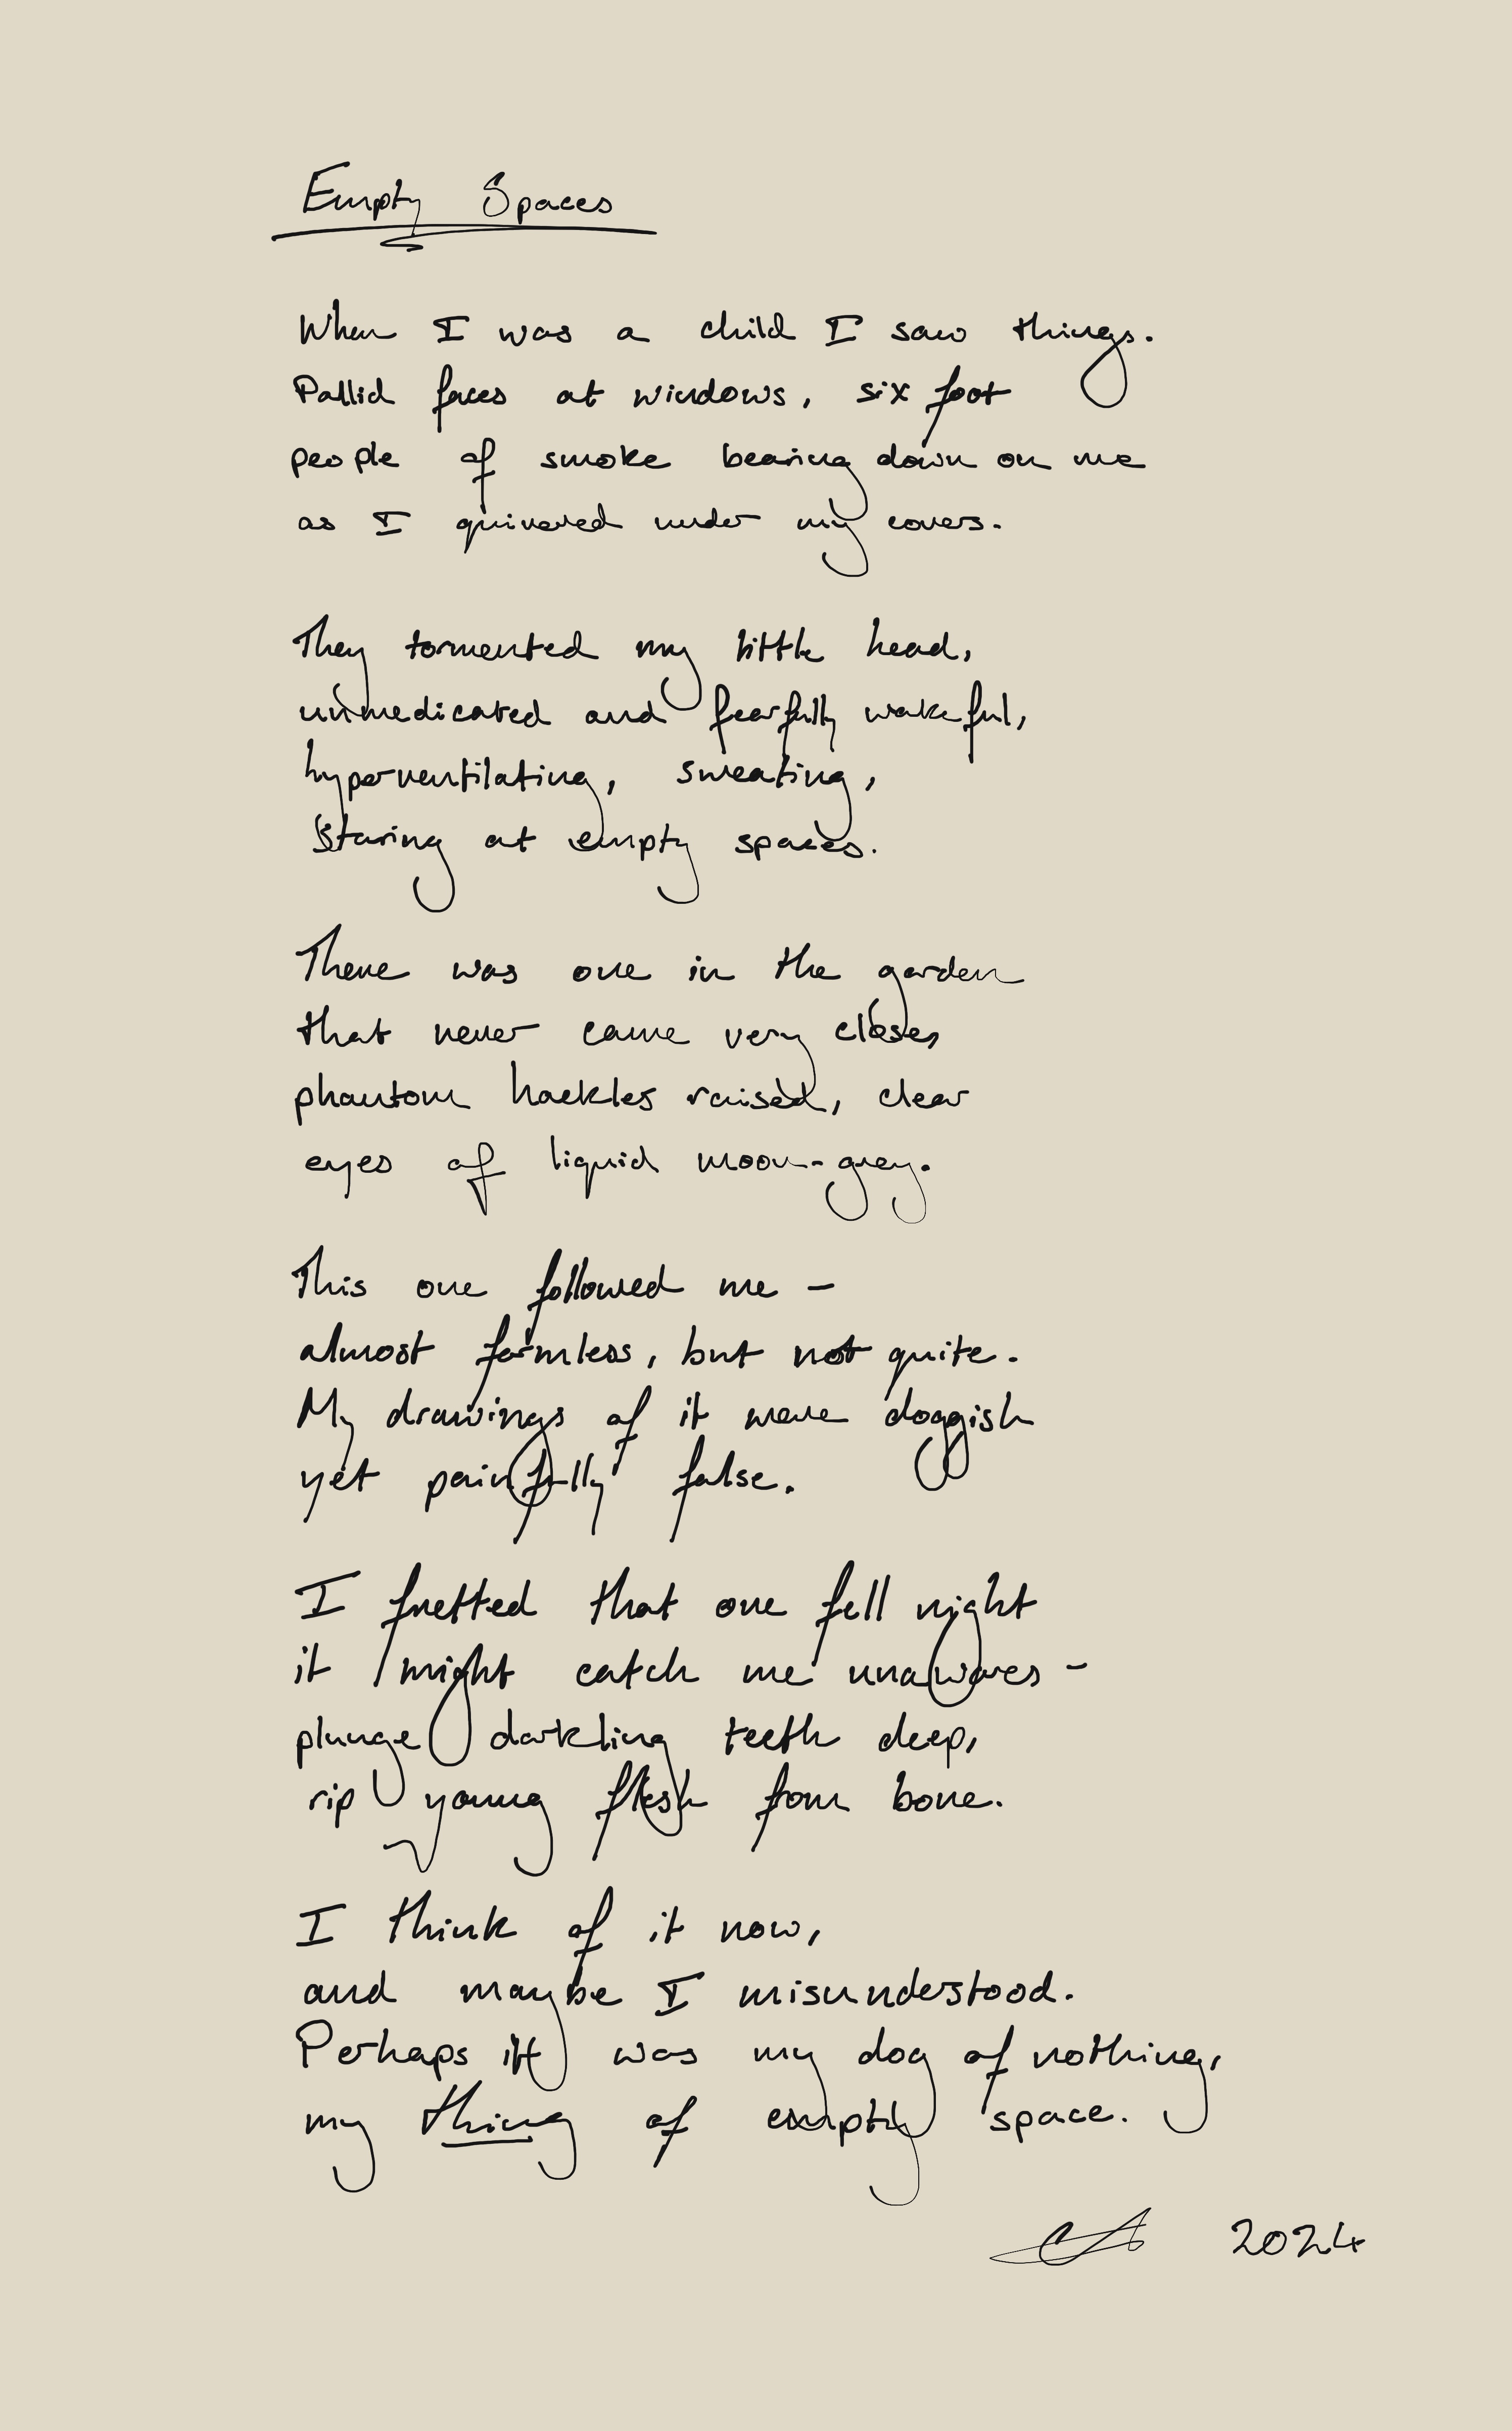 Empty Spaces
When I was a child I saw things.
Pallid faces at windows, six foot
people of smoke bearing down on me
as I quivered under my covers.
They tormented my little head,
unmedicated and fearfully wakeful,
hyperventilating, sweating,
staring at empty spaces.
There was one in the garden
that never came very close,
phantom hackles raised, clear
eyes of liquid moon-grey.
This one followed me -
almost formless, but not quite.
My drawings of it were doggish
yet painfully false.
I fretted that one fell night
it might catch me unawares -
plunge darkling teeth deep,
rip young flesh from bone.
I think of it now,
and maybe I misunderstood.
Perhaps it was my dog of nothing,
my thing of empty space.
2024